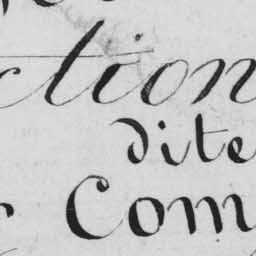 ction
dite
Com